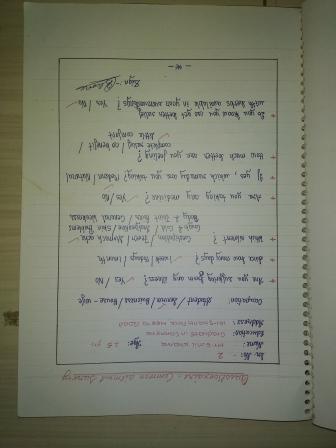 Questionnaire - Common ailment Survey
Sr. No. - 2
Name: Mr. Sunil Sharma Age: 25 yrs
Education: Graduate in Commerce
Address:
Occupation: Student / Service / Business / House - wife
* Are you suffering from any illness? Yes / No
* Since how many days? 1 week / 15 days / 1 month
* Which ailment? Constipation / Fever / Stomach ache
Cough & Cold / Indigestion / Skin Problems
Body & Joint Pain / General Weakness
* Are you taking any medicine? Yes / No
* If yes, which remedy are you taking? Modern / Natural
* How much better are you feeling?
complete relief / no benefit /
little comfort
* Do you know you get better relief
with herbs available in your surroundings? Yes / No
Sign:-